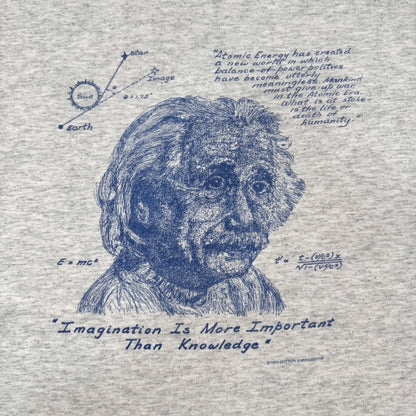 Star
Image
Sun
α = 1.75"
Earth
"Atomic Energy has created
a new world in which
balance-of-power politics
have become utterly
meaningless. Mankind
must give up war
in the Atomic Era.
What is at stake
is the life or
death of
humanity."
E = mc²
t' = t-(v/c²)x
√1-(v²/c²)
"Imagination Is More Important
Than Knowledge"